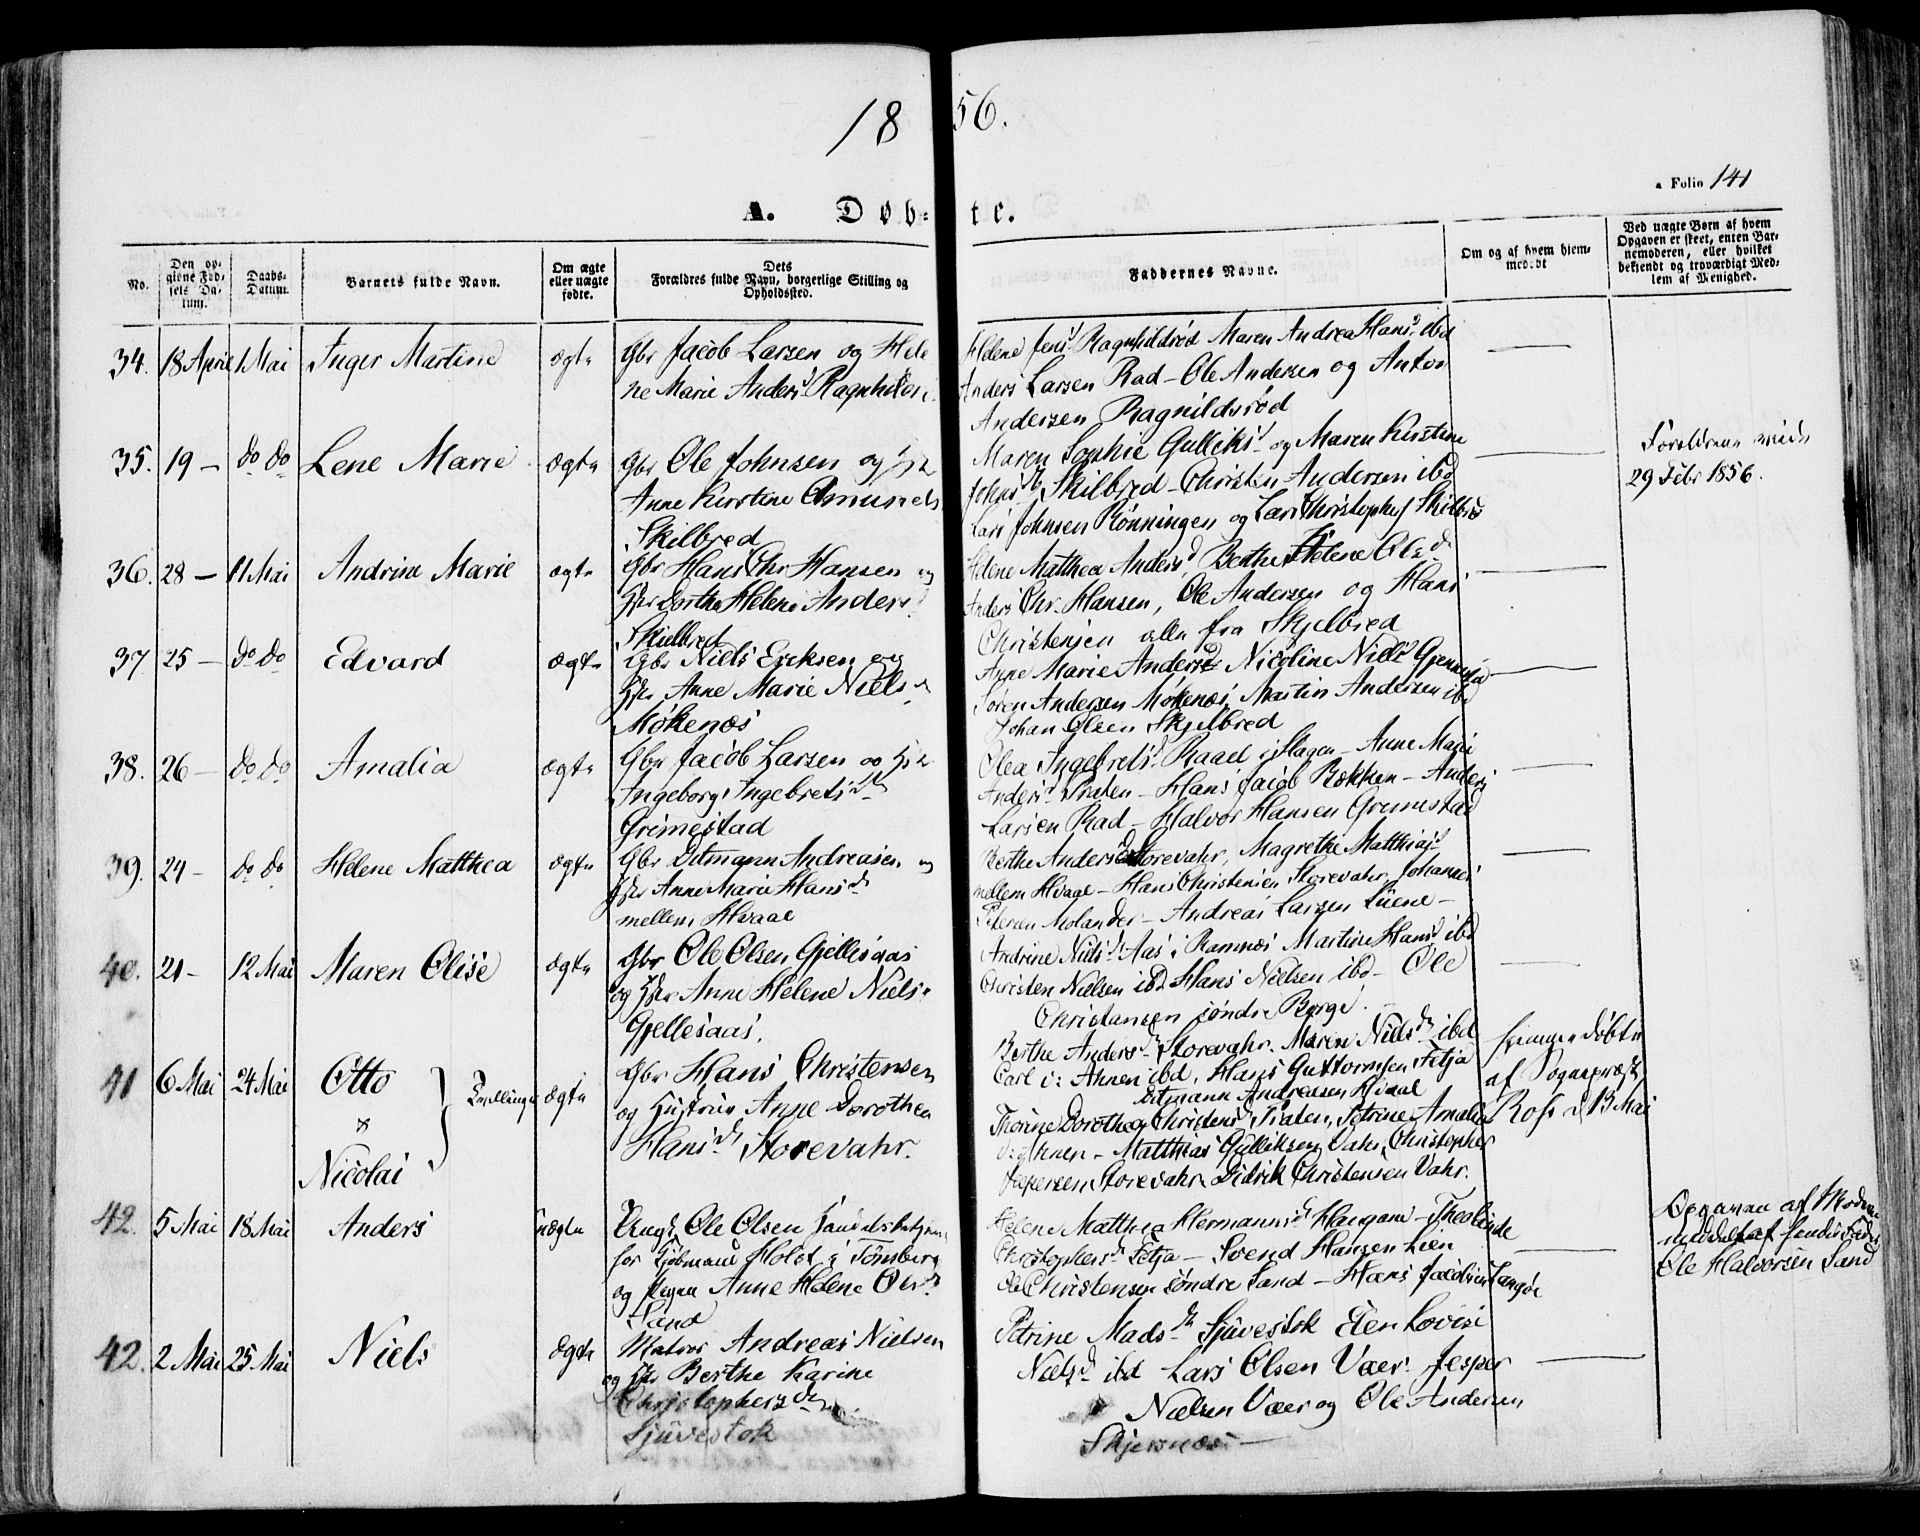 1856.
a Folio 141
A. Døbte.
No.
Den opgivne Fødsels Datum.
Daabs-Datum.
Barnets fulde Navn.
Om ægte eller uægte fødte.
Dets Forældres fulde Navn, borgerlige Stilling og Opholdssted.
Faddernes Navne.
Om og af hvem hjemmedøbt
Ved uægte Børn af hvem Opgaven er skeet, enten Barnemoderen, eller hvilket bekjendt og troværdigt Medlem af Menighed.
34. 18 April 1 Mai Inger Martine ægte
Gbr Jacob Larsen og Hele
ne Marie Andersd Ragnhildsrø
Helene Jensd Ragnhildsrød Maren Andrea Hansd ibd
Anders Larsen Rad – Ole Andersen og Anton
Andersen Ragnildsrød
35. 19 – do do Lene Marie ægte
Gbr Ole Johnsen og
Anne Kirstine Amunds
Skilbred
Maren Sophie Gulliksd og Maren Kirstine
Johnsd Skilbred – Christen Andersen ibd
Lars Johnsen Rønningen og Lars Christophs Skilbred
Forældrene viede
29 Febr 1856.
36. 28 – 11 Mai Andrine Marie ægte
Gbr Hans Chr Hansen og
Hst Dorthe Helene Anders
Skielbred
Helene Matthea Andersd, Berthe Helene Olsd
Anders Chr. Hansen, Ole Andersen og Hans
Christensen alle fra Skjelbred
37. 25 – do do Edvard ægte
Gbr Niels Ericksen og
Hst Anne Marie Niels d
Møkenæs
Anne Marie Andersd Nicoline Nielsd
Søren Andersen Møkenæs, Martin Andersen ibd
Johan Olsen Skjelbred
38. 26 – do do Amalia ægte
Gbr Jacob Larsen og
Ingeborg Ingebretsd
Grimestad
Olea Ingebretsd Raael i Slagen – Anne Marie
Andersd Præten – Hans Jacob Bækken – Anders
Larsen Rad – Halvor Hansen Grimestad
39. 24 – do do Helene Matthea ægte
Gbr Ditmann Andreasen og
Hst Anne Marie Hansd
mellem Hvaal
Berthe Andersd Storevahr, Magrethe Matthiasd
mellem Hvaal – Hans Christensen Storevahr, Johannes
Petersen Molander – Andreas Larsen Luene –
40. 21 – 12 Mai Maren Olise ægte
Gbr Ole Olsen Gjellesaas
og Hst Anne Helene Niels
Gjellesaas.
Andrine Nielsd Aas i Ramnæs Martine Hansd ibd
Christen Nielsen ibd Hans Nielsen ibd – Ole
Christansen søndre Berge.
41 6 Mai 24 Mai Otto
&
Nicolai
Tvillinger ægte
Gbr Hans Christensen
og Hustrue Anne Dorothea
Hansd Storevahr.
Berthe Andersd Storevahr. Maren Nielsd ibd
Carl v: Ahnen ibd, Hans Guttormsen Fetja
Ditmann Andreasen Hvaal
Thorine Dorothea Christensd Præten, Petrine Amalia
v: Ahnen – Matthias Gulliksen Vahr, Christopher
Jespersen Storevahr Didrik Christensen Vahr.
hjemmedøbt
af Sogneprest
Ross d 13 Mai
42. 5 Mai 18 Mai Anders uægte
Ungk Ole Olsen Handelsbetjen
for Kjøbmand Holst i Tønsberg
og Pigen Anne Helene Olsd
Sand
Helene Matthea Hermannsd Haugane – Theolinde
Christophersd Fetja – Svend Hansen Lien
Ole Christensen søndre Sand – Hans Jacobsen Langøe
Opgaven af Moderen
meddelt af hendes Fader
Ole Halvorsen Sand
42. 2 Mai 25 Mai Niels ægte
Matros Andreas Nielsen
og Hst Berthe Karine
Christophersd
Sjuvestok
Petrine Madsd Sjuvestok Elen Lovise
Nielsd ibd Lars Olsen Vaer. Jesper
Nielsen Vaer og Ole Andersen
Skjersnæs –